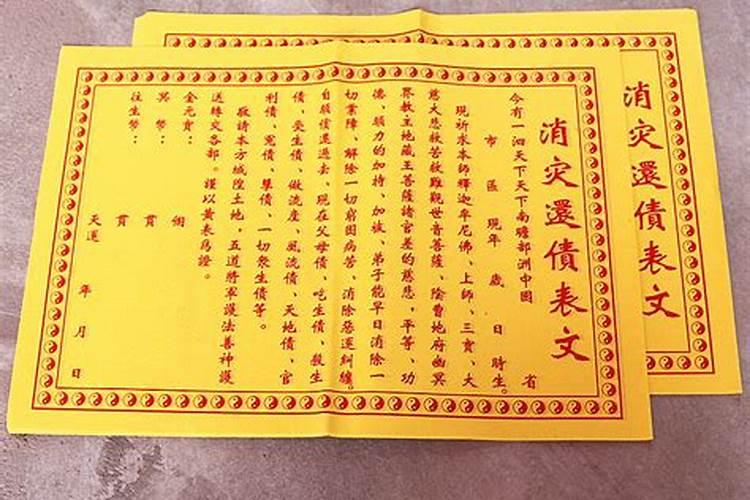 消灾還債表文
今有一泗天下天下南瞻部洲中國 省
市 區 現年 歲 日 時生。
現祈求本師釋迦牟尼佛、上師、三寶、大
慈大悲救苦救難觀世音菩薩、陰曹地府幽冥
界教主地藏王菩薩諸官差的慈悲，平等、功
德、願力的加持、加被、弟子能早日消除一
切業障、解除一切窮困病苦、消除惡運糾纏。
自願償還過去、現在父母債、吃生債、殺生
債、受生債、做流產、風流債、天地債、官
利債、冤債、孽債、一切衆生債等。
敬請本方城隍土地，五道將軍護法善神護
送轉交各部。謹以黃表爲證。
金元寶： 個
冥 幣： 貫
往生幣： 貫
天運 年 月 日
消灾還債表文